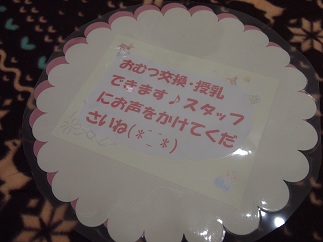 おむつ交換・授乳
できます♪スタッフ
にお声をかけてくだ
さいね(*¨*)